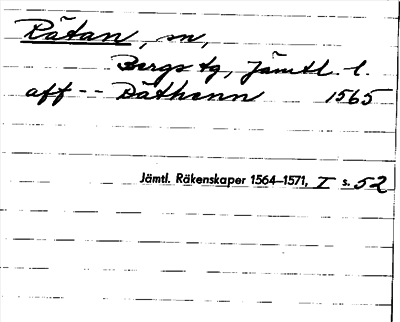 Rätan, sn,
Bergs tg, Jämtl. l.
aff -- Däthenn 1565
Jämtl. Räkenskaper 1564–1571, I s. 52